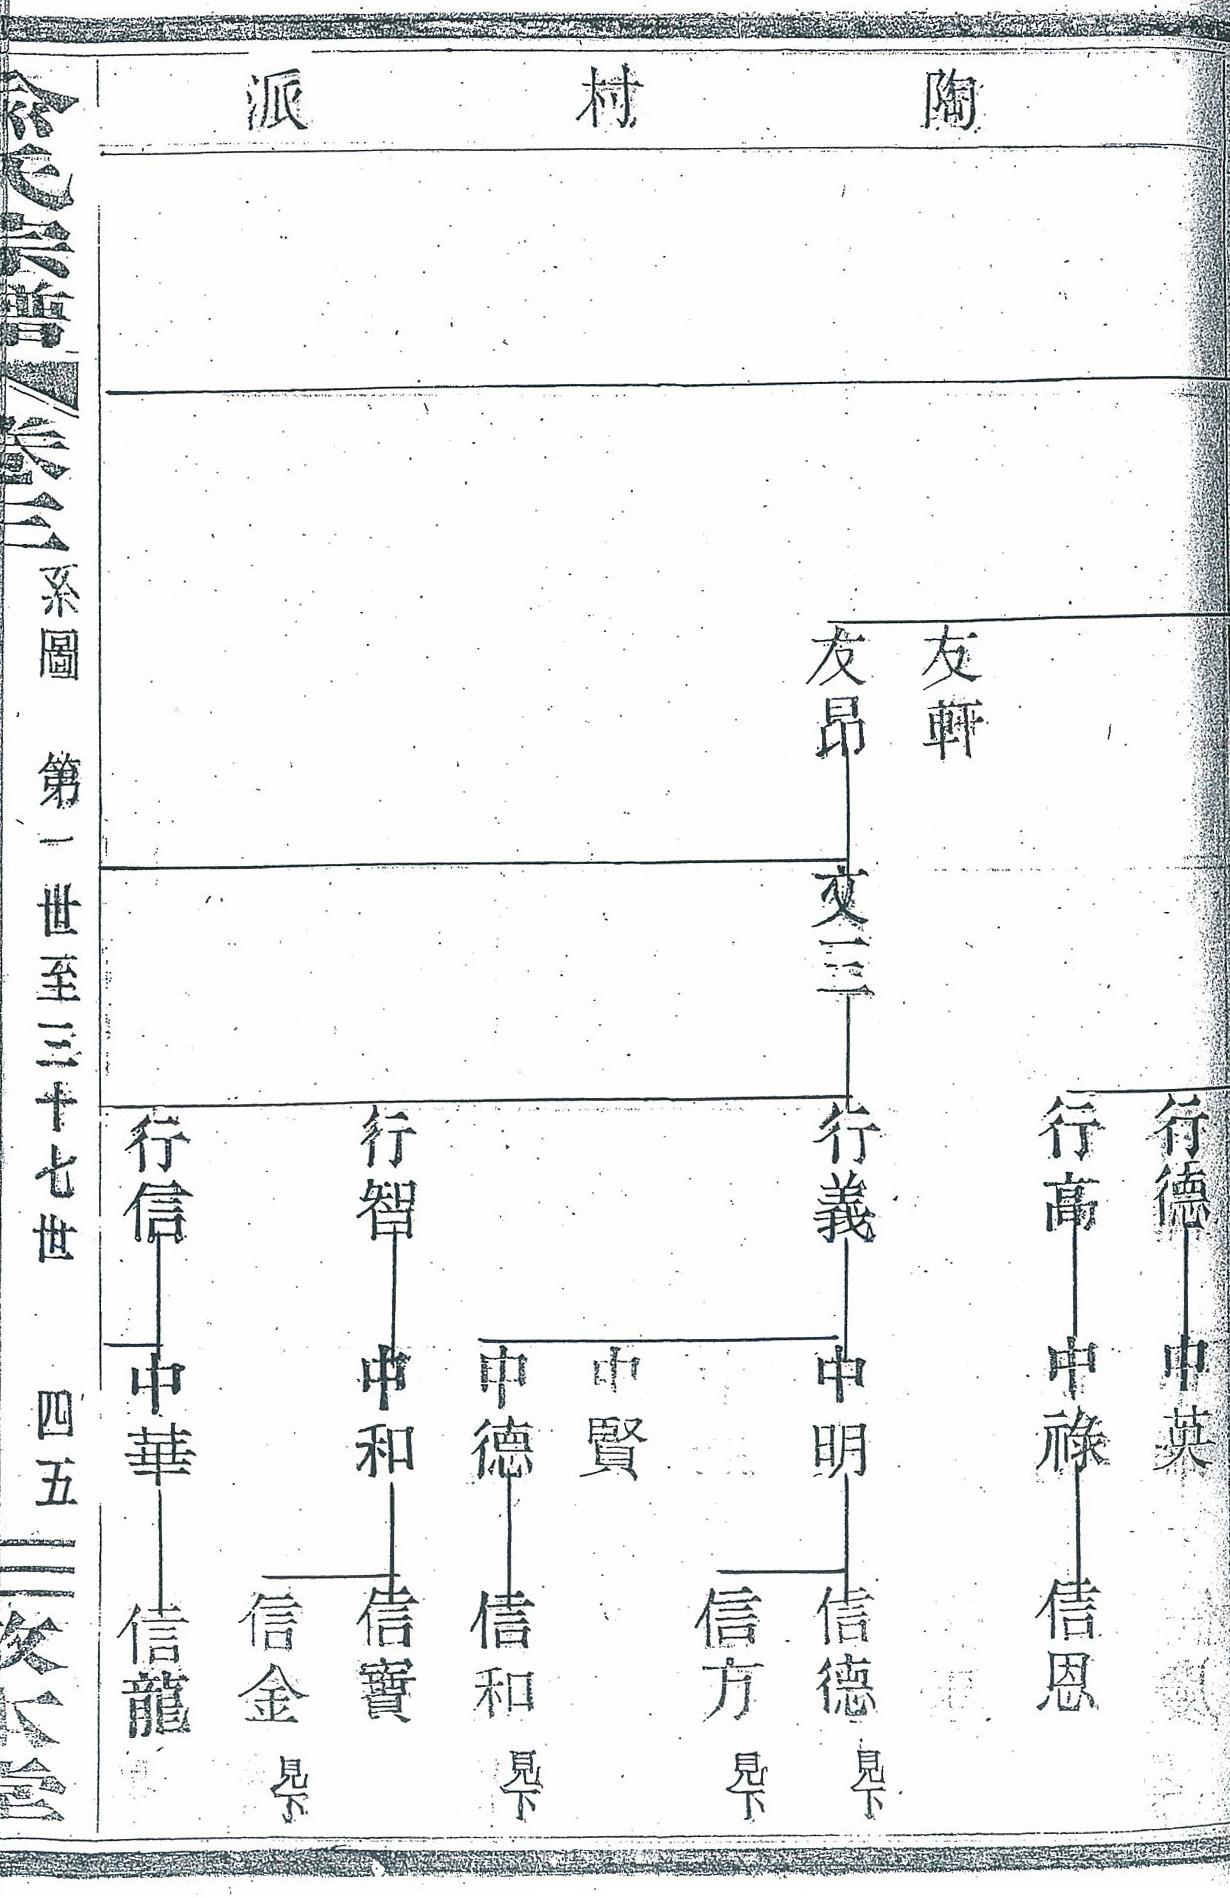 陶村派
友軒
友昂
文三
行德
行高
行義
行智
行信
中英
中祿
中明
中賢
中德
中和
中華
信恩
信德 見下
信方 見下
信和 見下
信寶
信金 見下
信龍
氏宗譜 卷三 系圖 第一世至三十七世 四五 敦本堂